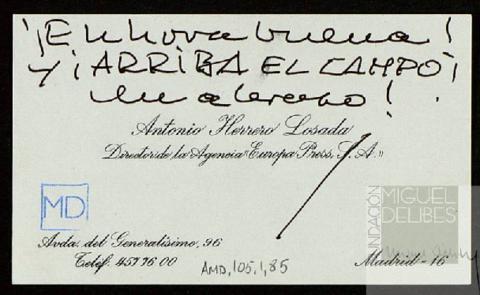 ¡Enhorabuena!
y ¡ARRIBA EL CAMPO!
un abrazo!
Antonio Herrero Losada
Director de la Agencia "Europa Press, S. A."
MD
Avda. del Generalísimo, 96
Teléf. 457 76 00
AMD,105,1,85
Madrid - 16
FUNDACIÓN
MIGUEL
DELIBES